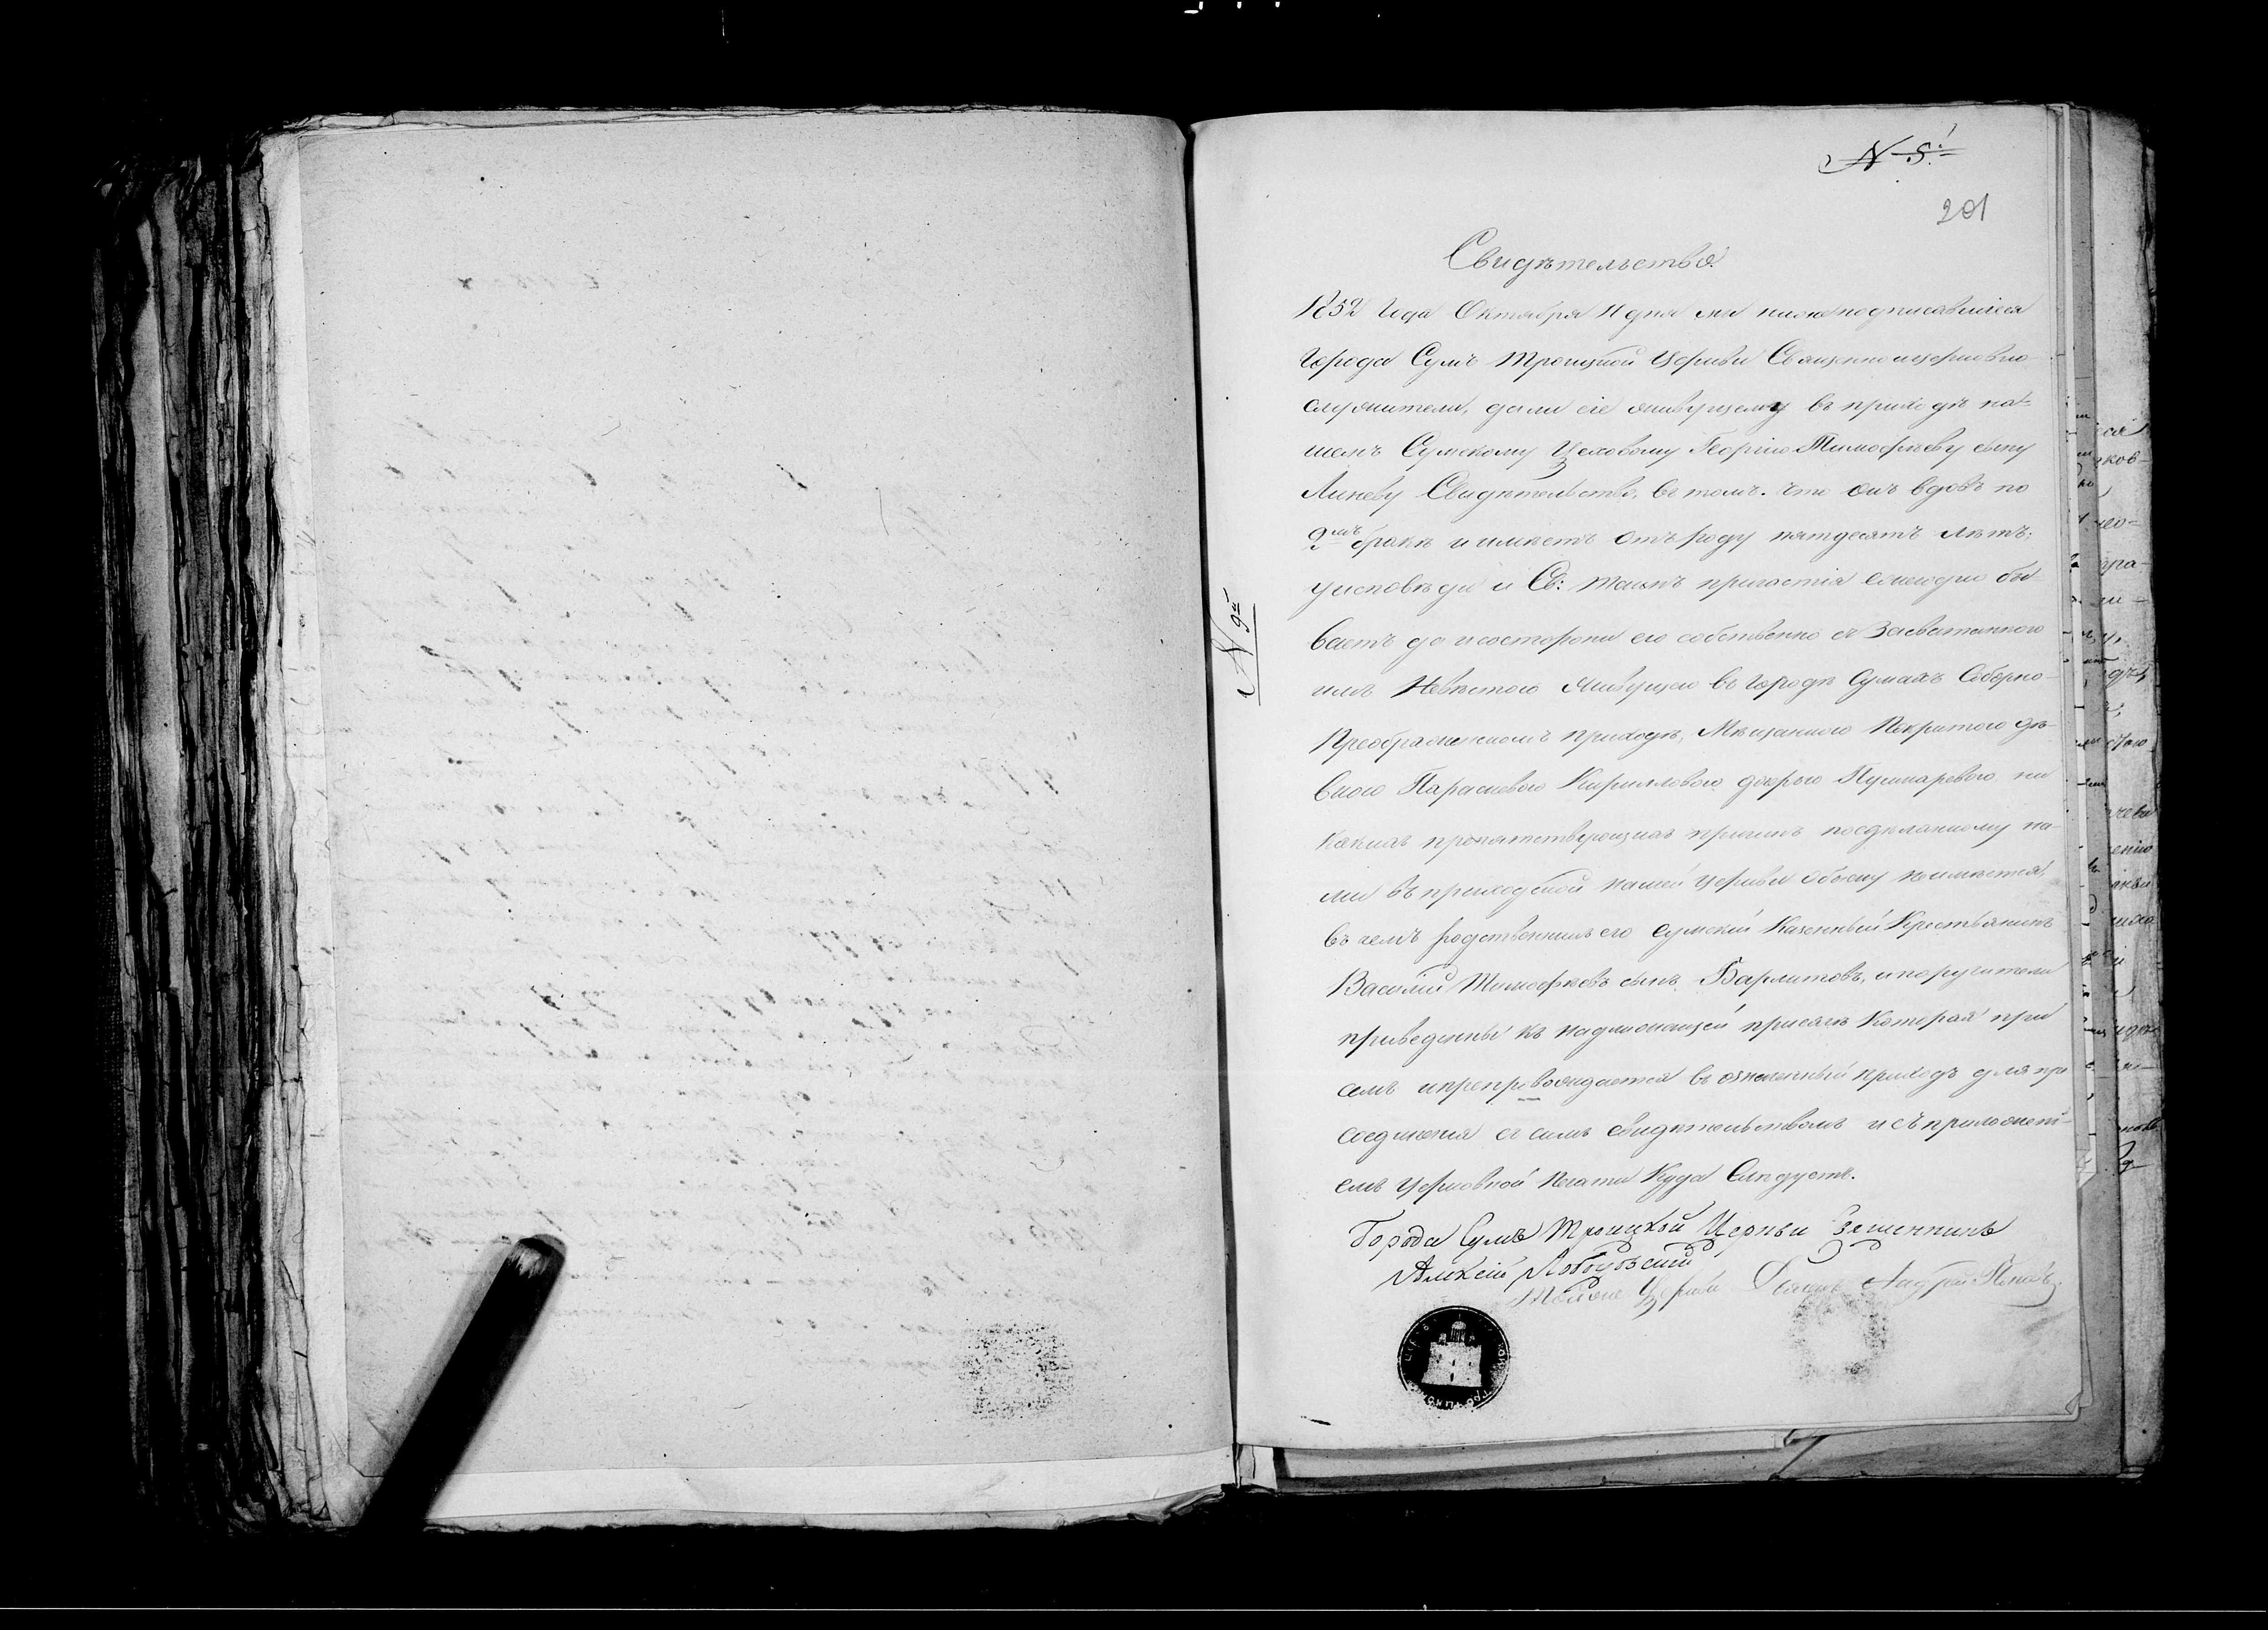 N 5.
201
Свидѣтельство.
1852 Года Октября 11 дня мы нижеподписавшіеся
Города Сумъ Троицкой Церкви Священноцерковно
служители, дали сіе живущему въ приходѣ на=
шемъ Сумскому Цеховому Георгію Тимофѣеву сыну
Линеву Свидѣтельство, въ томъ. что онъ вдовъ по
2мъ бракѣ и имѣетъ отъ роду пятдесятъ лѣтъ;
у исповѣди и Св: Таинъ причастія ежегодно бы
ваетъ да и состороны его собственно съ Засватанною
имъ Невѣстою живущею въ Городѣ Сумахъ Соборно-
Преображенскомъ приходѣ, Мѣщанкою Покрытою дѣ-
вкою Параскевою Кирилловою дочерью Пушкаревою ни
какихъ препятствующихъ причинъ посдѣланному на
ми въ приходской нашей Церкви обыску неимѣется,
въ чемъ родственникъ его Сумскій Казенный Крестьянинъ
Василій Тимофѣевъ сынъ Бармитовъ, и поручители
приведены къ надлежащей присягѣ Которая при
семъ и препровождается въ означенный приходъ для при
соединенія съ симъ свидѣтельствомъ и съ приложені-
емъ Церковной печати Куда Слѣдуетъ.
Города Сумъ Троицкой Церкви Священникъ
Алексій
Тойже Церкви Дьячокъ Андрей
N 9й